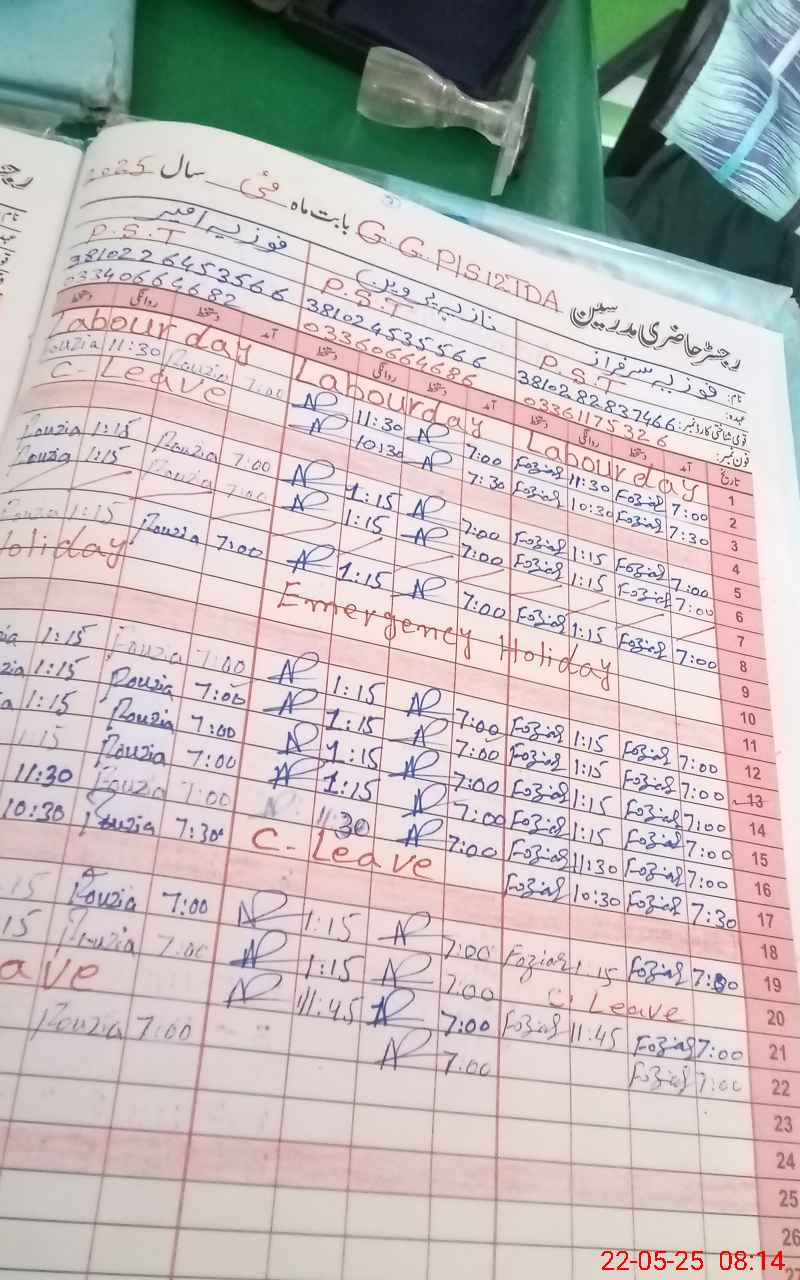 رجسٹر حاضری مدرسین G.G.P/S 12TDA بابت ماہ مئی سال 2025
نام: فوزیہ سرفراز نازیہ پروین فوزیہ امیر
عہدہ: P.S.T P.S.T P.S.T
قومی شناختی کارڈ نمبر: 3810282837466 381024535566 3810226453566
فون نمبر: 03361175326 03360664686 03340664682
تاریخ آمد دستخط روانگی دستخط آمد دستخط روانگی دستخط آمد دستخط روانگی دستخط
1 Labour day Labour day Labour day
2 7:00 Fozia 11:30 Fozia 7:00 11:30 7:00 Fouzia 11:30 Fouzia
3 7:30 Fozia 10:30 Fozia 7:30 10:30 C-Leave
4
5 7:00 Fozia 1:15 Fozia 7:00 1:15 7:00 Fouzia 1:15 Fouzia
6 7:00 Fozia 1:15 Fozia 7:00 1:15 7:00 Fouzia 1:15 Fouzia
7
8 7:00 Fozia 1:15 Fozia 7:00 1:15 7:00 Fouzia 1:15 Fouzia
9 Emergency Holiday Holiday
10
11
12 7:00 Fozia 1:15 Fozia 7:00 1:15 7:00 Fouzia 1:15
13 7:00 Fozia 1:15 Fozia 7:00 1:15 7:00 Fouzia 1:15
14 7:00 Fozia 1:15 Fozia 7:00 1:15 7:00 Fouzia 1:15
15 7:00 Fozia 1:15 Fozia 7:00 1:15 7:00 Fouzia 1:15
16 7:00 Fozia 11:30 Fozia 7:00 11:30 7:00 Fouzia 11:30
17 7:30 Fozia 10:30 Fozia C-Leave 7:30 Fouzia 10:30
18
19 7:00 Fozia 1:15 Fozia 7:00 1:15 7:00 Fouzia 15
20 C. Leave 7:00 1:15 7:00 Fouzia 15
21 7:00 Fozia 11:45 Fozia 7:00 11:45 ave
22 7:00 Fozia 7:00 7:00 Fouzia
23
24
25
26
22-05-25 08:14